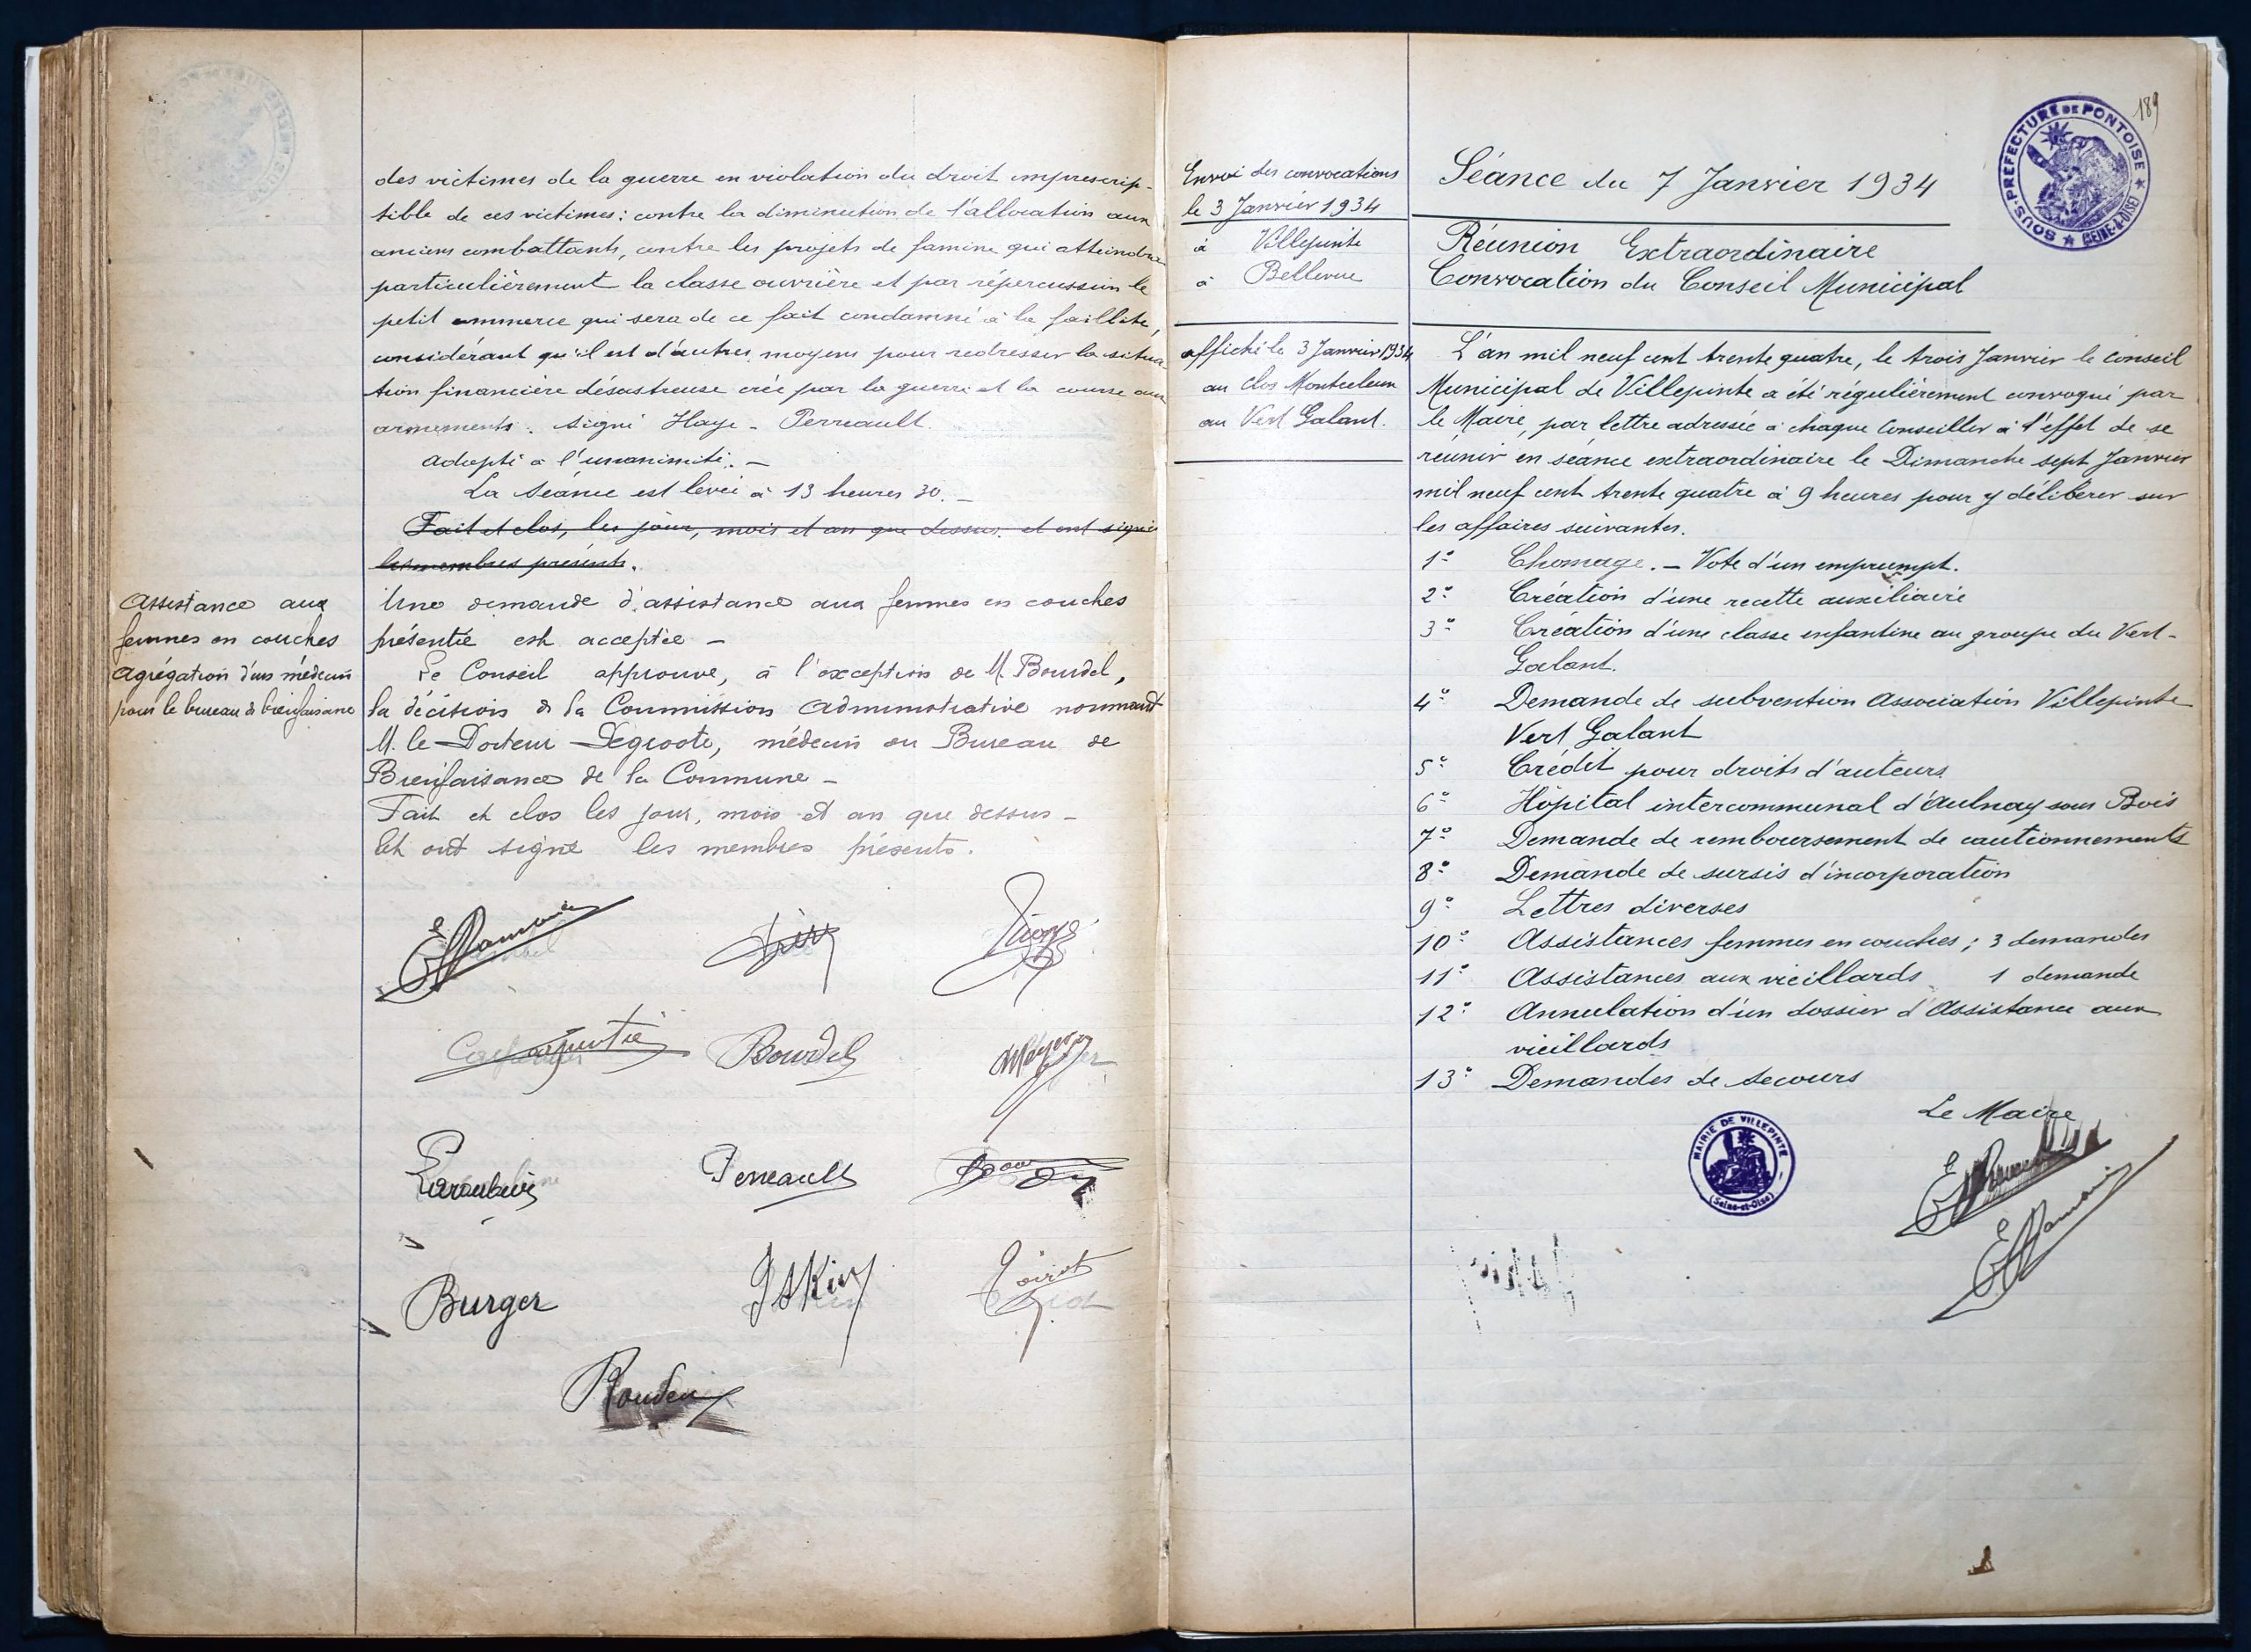 des victimes de la guerre en violation du droit imprescrip-
tible de ces victimes : contre la diminution de l'allocation aux
anciens combattants, contre les projets de famine qui atteindra
particulièrement la classe ouvrière et par répercussion le
petit commerce qui sera de ce fait condamné à la faillite,
considérant qu'il est d'autres moyens pour redresser la situa-
tion financière désastreuse crée par la guerre et la course aux
armements. signé Haye - Perreault.
Adopté à l'unanimité. -
La séance est levée à 13 heures 30. -
Fait et clos, les jour, mois et an que dessus. et ont signé
les membres présents.
Assistance aux
femmes en couches
Agrégation d'un médecin
pour le bureau de bienfaisance
Une demande d'assistance aux femmes en couches
présentée est acceptée -
Le Conseil approuve, à l'exception de M. Bourdel,
la décision de la Commission Administrative nommant
M. le Docteur Degroote, médecin du Bureau de
Bienfaisance de la Commune -
Fait et clos les jour, mois et an que dessus -
Et ont signé les membres présents.
Bourdel
Perreault
Burger
Iskin
Poirot
189
SOUS-PREFECTURE DE PONTOISE
(SEINE-&-OISE)
Envoi des convocations
le 3 Janvier 1934
à Villepinte
à Bellevue
affiché le 3 Janvier 1934
au clos Montceleux
au Vert Galant.
Séance du 7 Janvier 1934
Réunion Extraordinaire
Convocation du Conseil Municipal
L'an mil neuf cent trente quatre, le trois Janvier le conseil
Municipal de Villepinte a été régulièrement convoqué par
le Maire, par lettre adressée à chaque Conseiller à l'effet de se
réunir en séance extraordinaire le Dimanche sept Janvier
mil neuf cent trente quatre à 9 heures pour y délibérer sur
les affaires suivantes.
1° Chomage. - Vote d'un emprumpt.
2° Création d'une recette auxiliaire
3° Création d'une classe enfantine au groupe du Vert-
Galant.
4° Demande de subvention Association Villepinte
Vert Galant
5° Crédit pour droits d'auteurs
6° Hôpital intercommunal d'Aulnay sous Bois
7° Demande de remboursement de cautionnements
8° Demande de sursis d'incorporation
9° Lettres diverses
10° Assistances femmes en couches ; 3 demandes
11° Assistances aux vieillards 1 demande
12° Annulation d'un dossier d'Assistance aux
vieillards
13° Demandes de secours
Le Maire
MAIRIE DE VILLEPINTE
(Seine-et-Oise)